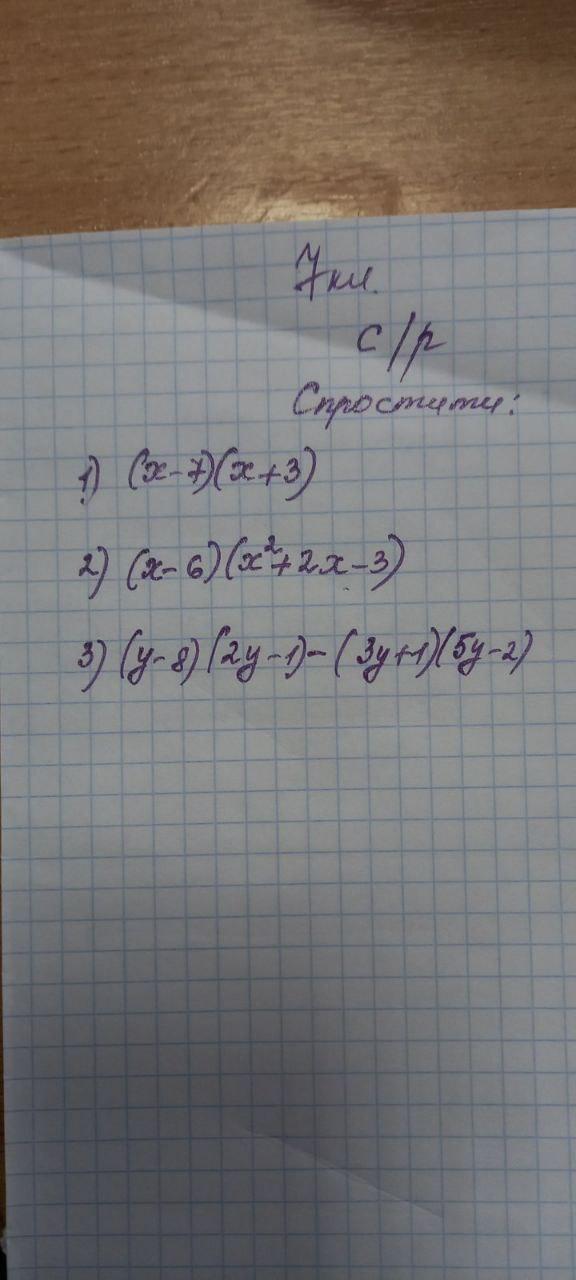 7 кл.
с/р
Спростити:
1) (x-7)(x+3)
2) (x-6)(x²+2x-3)
3) (y-8)(2y-1)-(3y+1)(5y-2)